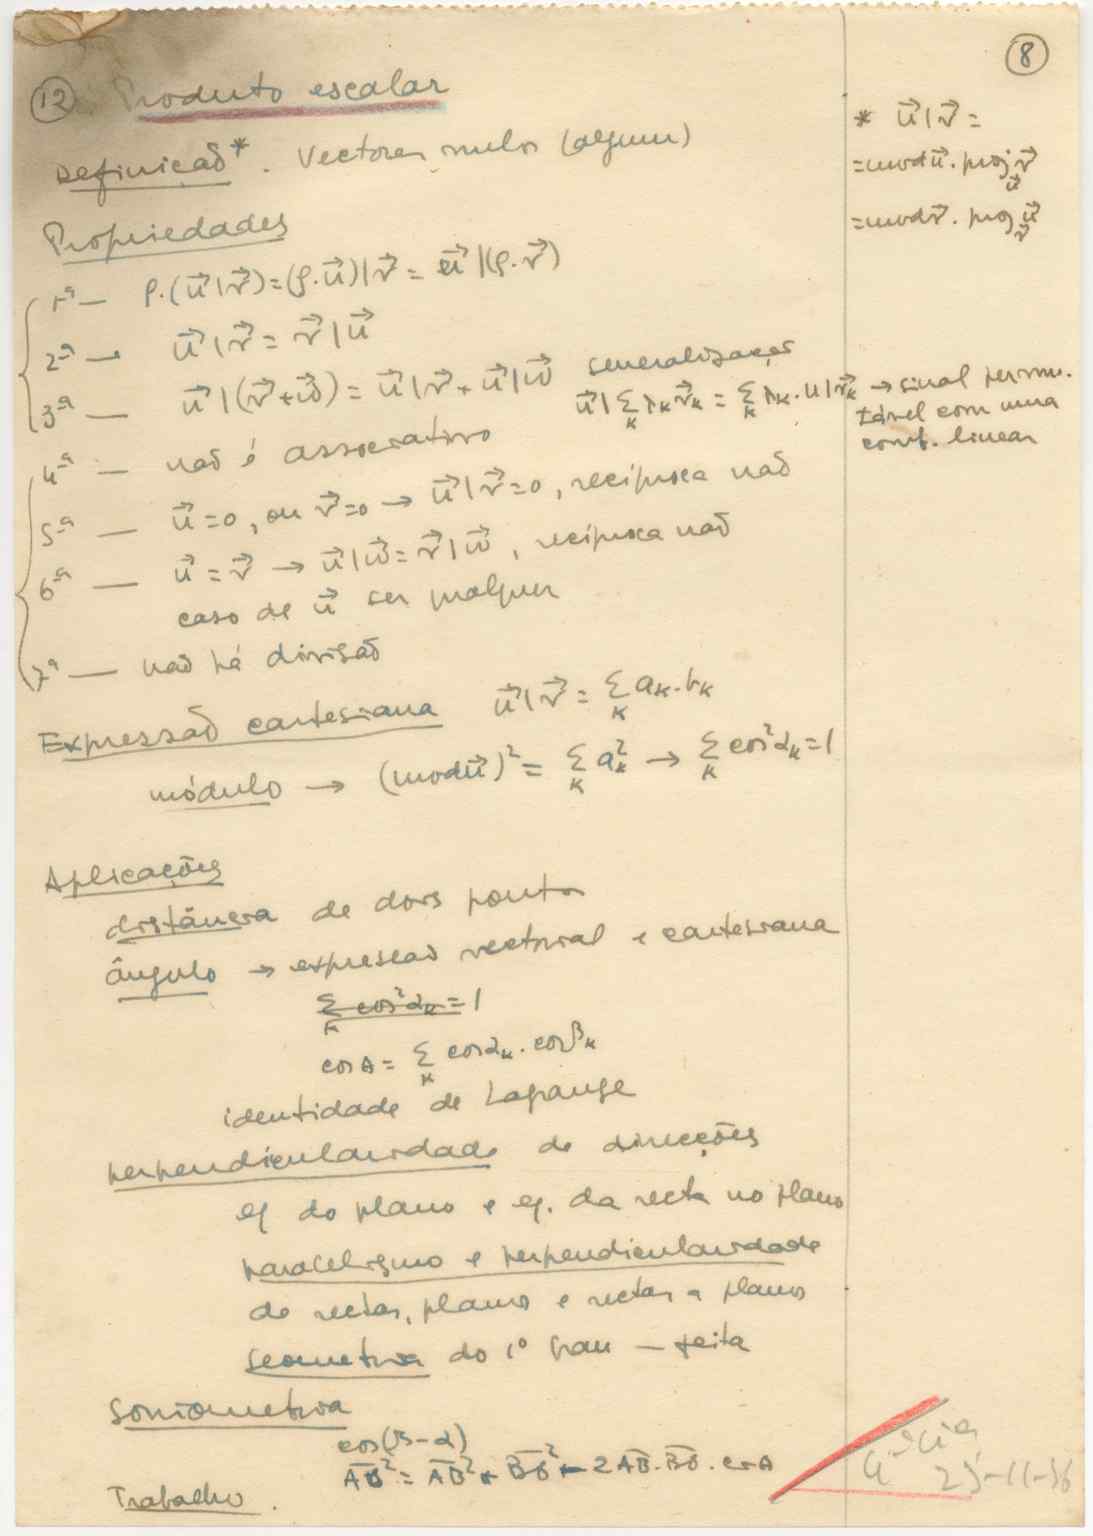 8
12 Produto escalar
Definição*. Vectores nulos (algum)
* u⃗|v⃗ =
= mod u⃗ . proj_u⃗ v⃗
= mod v⃗ . proj_v⃗ u⃗
Propriedades
1ª — ρ.(u⃗|v⃗)=(ρ.u⃗)|v⃗ = u⃗|(ρ.v⃗)
2ª — u⃗|v⃗ = v⃗|u⃗
3ª — u⃗|(v⃗+w⃗) = u⃗|v⃗ + u⃗|w⃗ generalizações
u⃗|Σ_K λ_K v⃗_K = Σ_K λ_K . u|v⃗_K → sinal permu-
tável com uma
comb. linear
4ª — não é associativo
5ª — u⃗=0, ou v⃗=0 → u⃗|v⃗=0, recíproca não
6ª — u⃗ = v⃗ → u⃗|w⃗ = v⃗|w⃗, recíproca não
caso de u⃗ ser qualquer
7ª — não há divisão
Expressão cartesiana u⃗|v⃗ = Σ_K a_K . b_K
módulo → (mod u⃗)² = Σ_K a²_K → Σ_K cos²α_K = 1
Aplicações
distância de dois pontos
ângulo → expressão vectorial e cartesiana
Σ_K cos²α_K = 1
cos A = Σ_K cosα_K . cosβ_K
identidade de Lagrange
perpendicularidade de direcções
eq do plano e eq. da recta no plano
paralelismo e perpendicularidade
de rectas, planos e rectas a planos
geometria do 1º grau — feita
Goniometria
cos(β-α)
Trabalho.